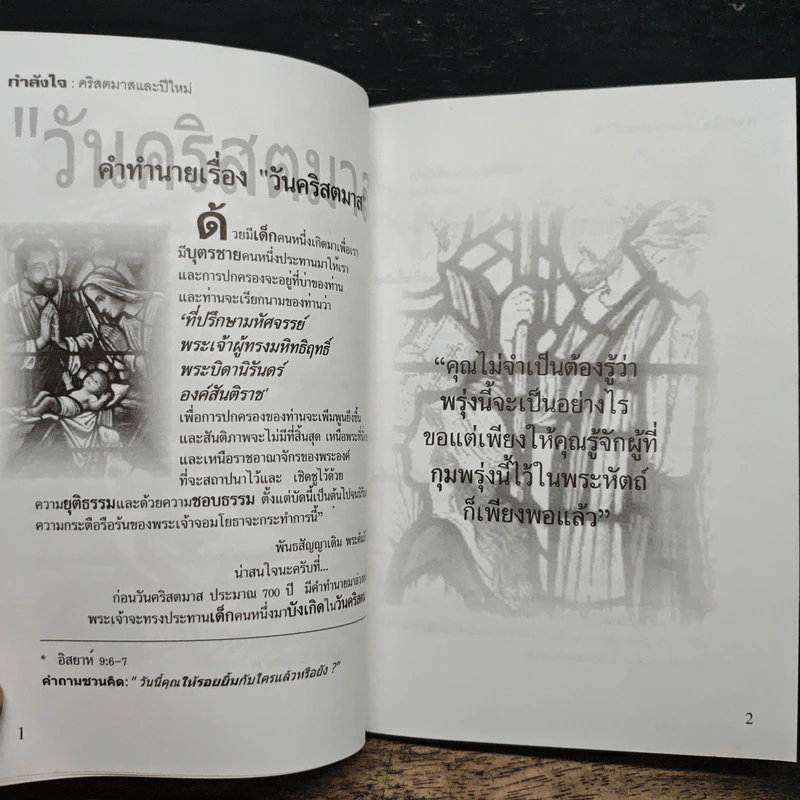 กำลังใจ : คริสตมาสและปีใหม่
"วันคริสตมาส
คำทำนายเรื่อง "วันคริสตมาส"
ด้วยมีเด็กคนหนึ่งเกิดมาเพื่อเรา
มีบุตรชายคนหนึ่งประทานมาให้เรา
และการปกครองจะอยู่ที่บ่าของท่าน
และท่านจะเรียกนามของท่านว่า
'ที่ปรึกษามหัศจรรย์
พระเจ้าผู้ทรงมหิทธิฤทธิ์
พระบิดานิรันดร์
องค์สันติราช'
เพื่อการปกครองของท่านจะเพิ่มพูนยิ่งขึ้น
และสันติภาพจะไม่มีที่สิ้นสุด เหนือพระที่นั่ง
และเหนือราชอาณาจักรของพระองค์
ที่จะสถาปนาไว้และ เชิดชูไว้ด้วย
ความยุติธรรมและด้วยความชอบธรรม ตั้งแต่บัดนี้เป็นต้นไปจน
ความกระตือรือร้นของพระเจ้าจอมโยธาจะกระทำการนี้"
พันธสัญญาเดิม
น่าสนใจนะครับที่...
ก่อนวันคริสตมาส ประมาณ 700 ปี มีคำทำนายมา
พระเจ้าจะทรงประทานเด็กคนหนึ่งมาบังเกิดในวันคริสต
* อิสยาห์ 9:6-7
คำถามชวนคิด: "วันนี้คุณให้รอยยิ้มกับใครแล้วหรือยัง ?"
1
"คุณไม่จำเป็นต้องรู้ว่า
พรุ่งนี้จะเป็นอย่างไร
ขอแต่เพียงให้คุณรู้จักผู้ที่
กุมพรุ่งนี้ไว้ในพระหัตถ์
ก็เพียงพอแล้ว"
2